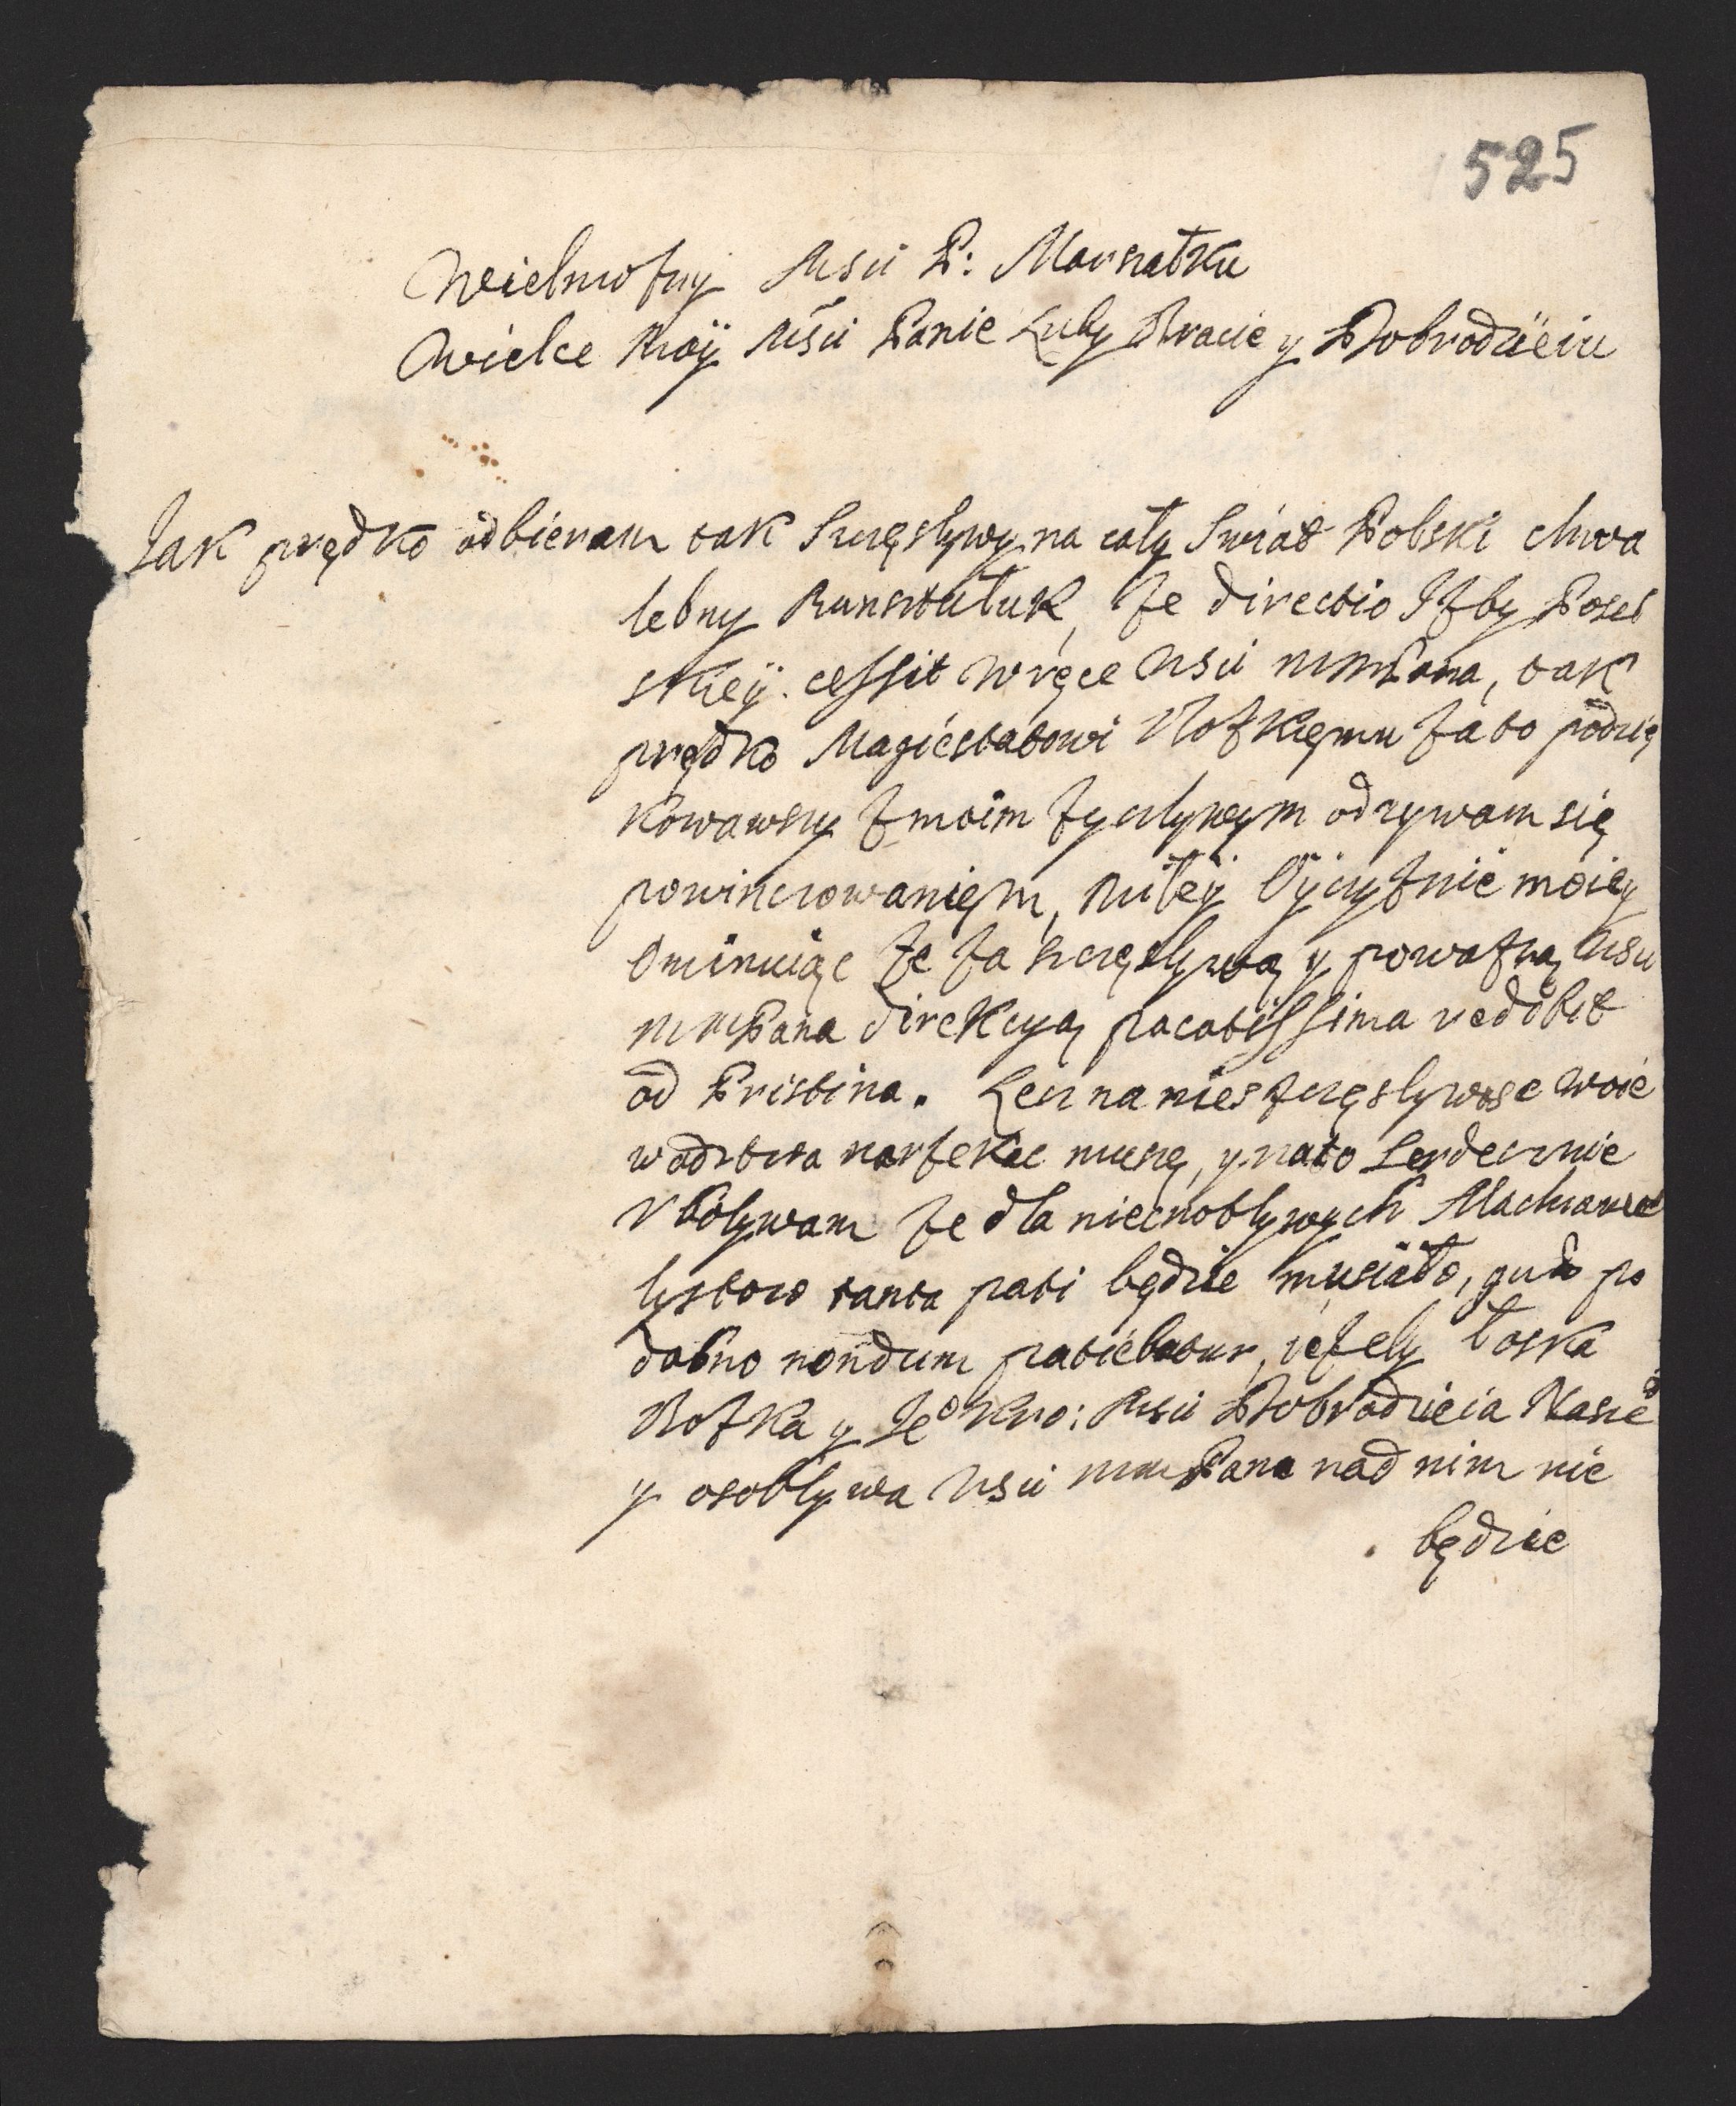 525
Wielmożny Msci P: Marszałku
Wielce Moÿ Msci Panie Luby Bracie y Dobrodzieiu
Jak prędko odbieram tak Szczęslywy na cały Swiat Polski chwa
lebny kunsztutuk, że directio Izby Posel
skieÿ cessit w ręce Wsci mmPana, tak
prędko Magiestatowi Bozkięmu za to podzię
kowawszy z moim zyczlywym odzywam się
powinczowanięm, miłeÿ Oÿczyznie moieÿ
Ominuiąc że za szczęslywą y poważną Wsci
mmPana direkcyą pacatissima reddibit
ad Pristina. Lecz na nieszczęslywosc Woie
wodztwa narzekac muszę, y na to Serdecznie
Vbolywam że dla niecnotlywych Machiawel
lystow tanta pati będzie musiało, quae po
dobno nondum patiebatur, ieżely łaska
Bozka y Je° Kro: Msci Dobrodzieia Nasze°
y osoblywa Wsci mmPana nad nim nie
będzie